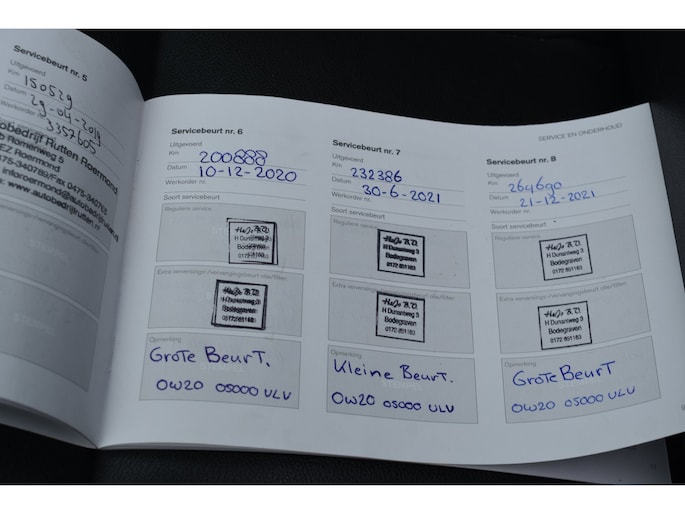 Servicebeurt nr. 5
Uitgevoerd
Km 150529
Datum 29-04-2019
Werkorder 3352605
Autobedrijf Rutten Roermond
Romenweg 5
EZ Roermond
Servicebeurt nr. 6
Uitgevoerd
Km 200888
Datum 10-12-2020
Werkorder nr.
Soort servicebeurt
Reguliere service
H Dunantweg 3
Bodegraven
Extra verversings-/vervangingsbeurt olie/filter
H Dunantweg 3
Bodegraven
0172 651163
Opmerking
Grote Beurt.
0W20 05000 ULV
Servicebeurt nr. 7
Uitgevoerd
Km 232386
Datum 30-6-2021
Werkorder nr.
Soort servicebeurt
Reguliere service
H Dunantweg 3
Bodegraven
0172 651163
Extra verversings-/vervangingsbeurt olie/filter
H Dunantweg 3
Bodegraven
0172 651163
Opmerking
Kleine Beurt.
0W20 05000 ULV
SERVICE EN ONDERHOUD
Servicebeurt nr. 8
Uitgevoerd
Km 264690
Datum 21-12-2021
Werkorder nr.
Soort servicebeurt
Reguliere service
H Dunantweg 3
Bodegraven
0172 651163
Extra verversings-/vervangingsbeurt olie/filter
H Dunantweg 3
Bodegraven
0172 651163
Opmerking
Grote Beurt
0W20 05000 ULV